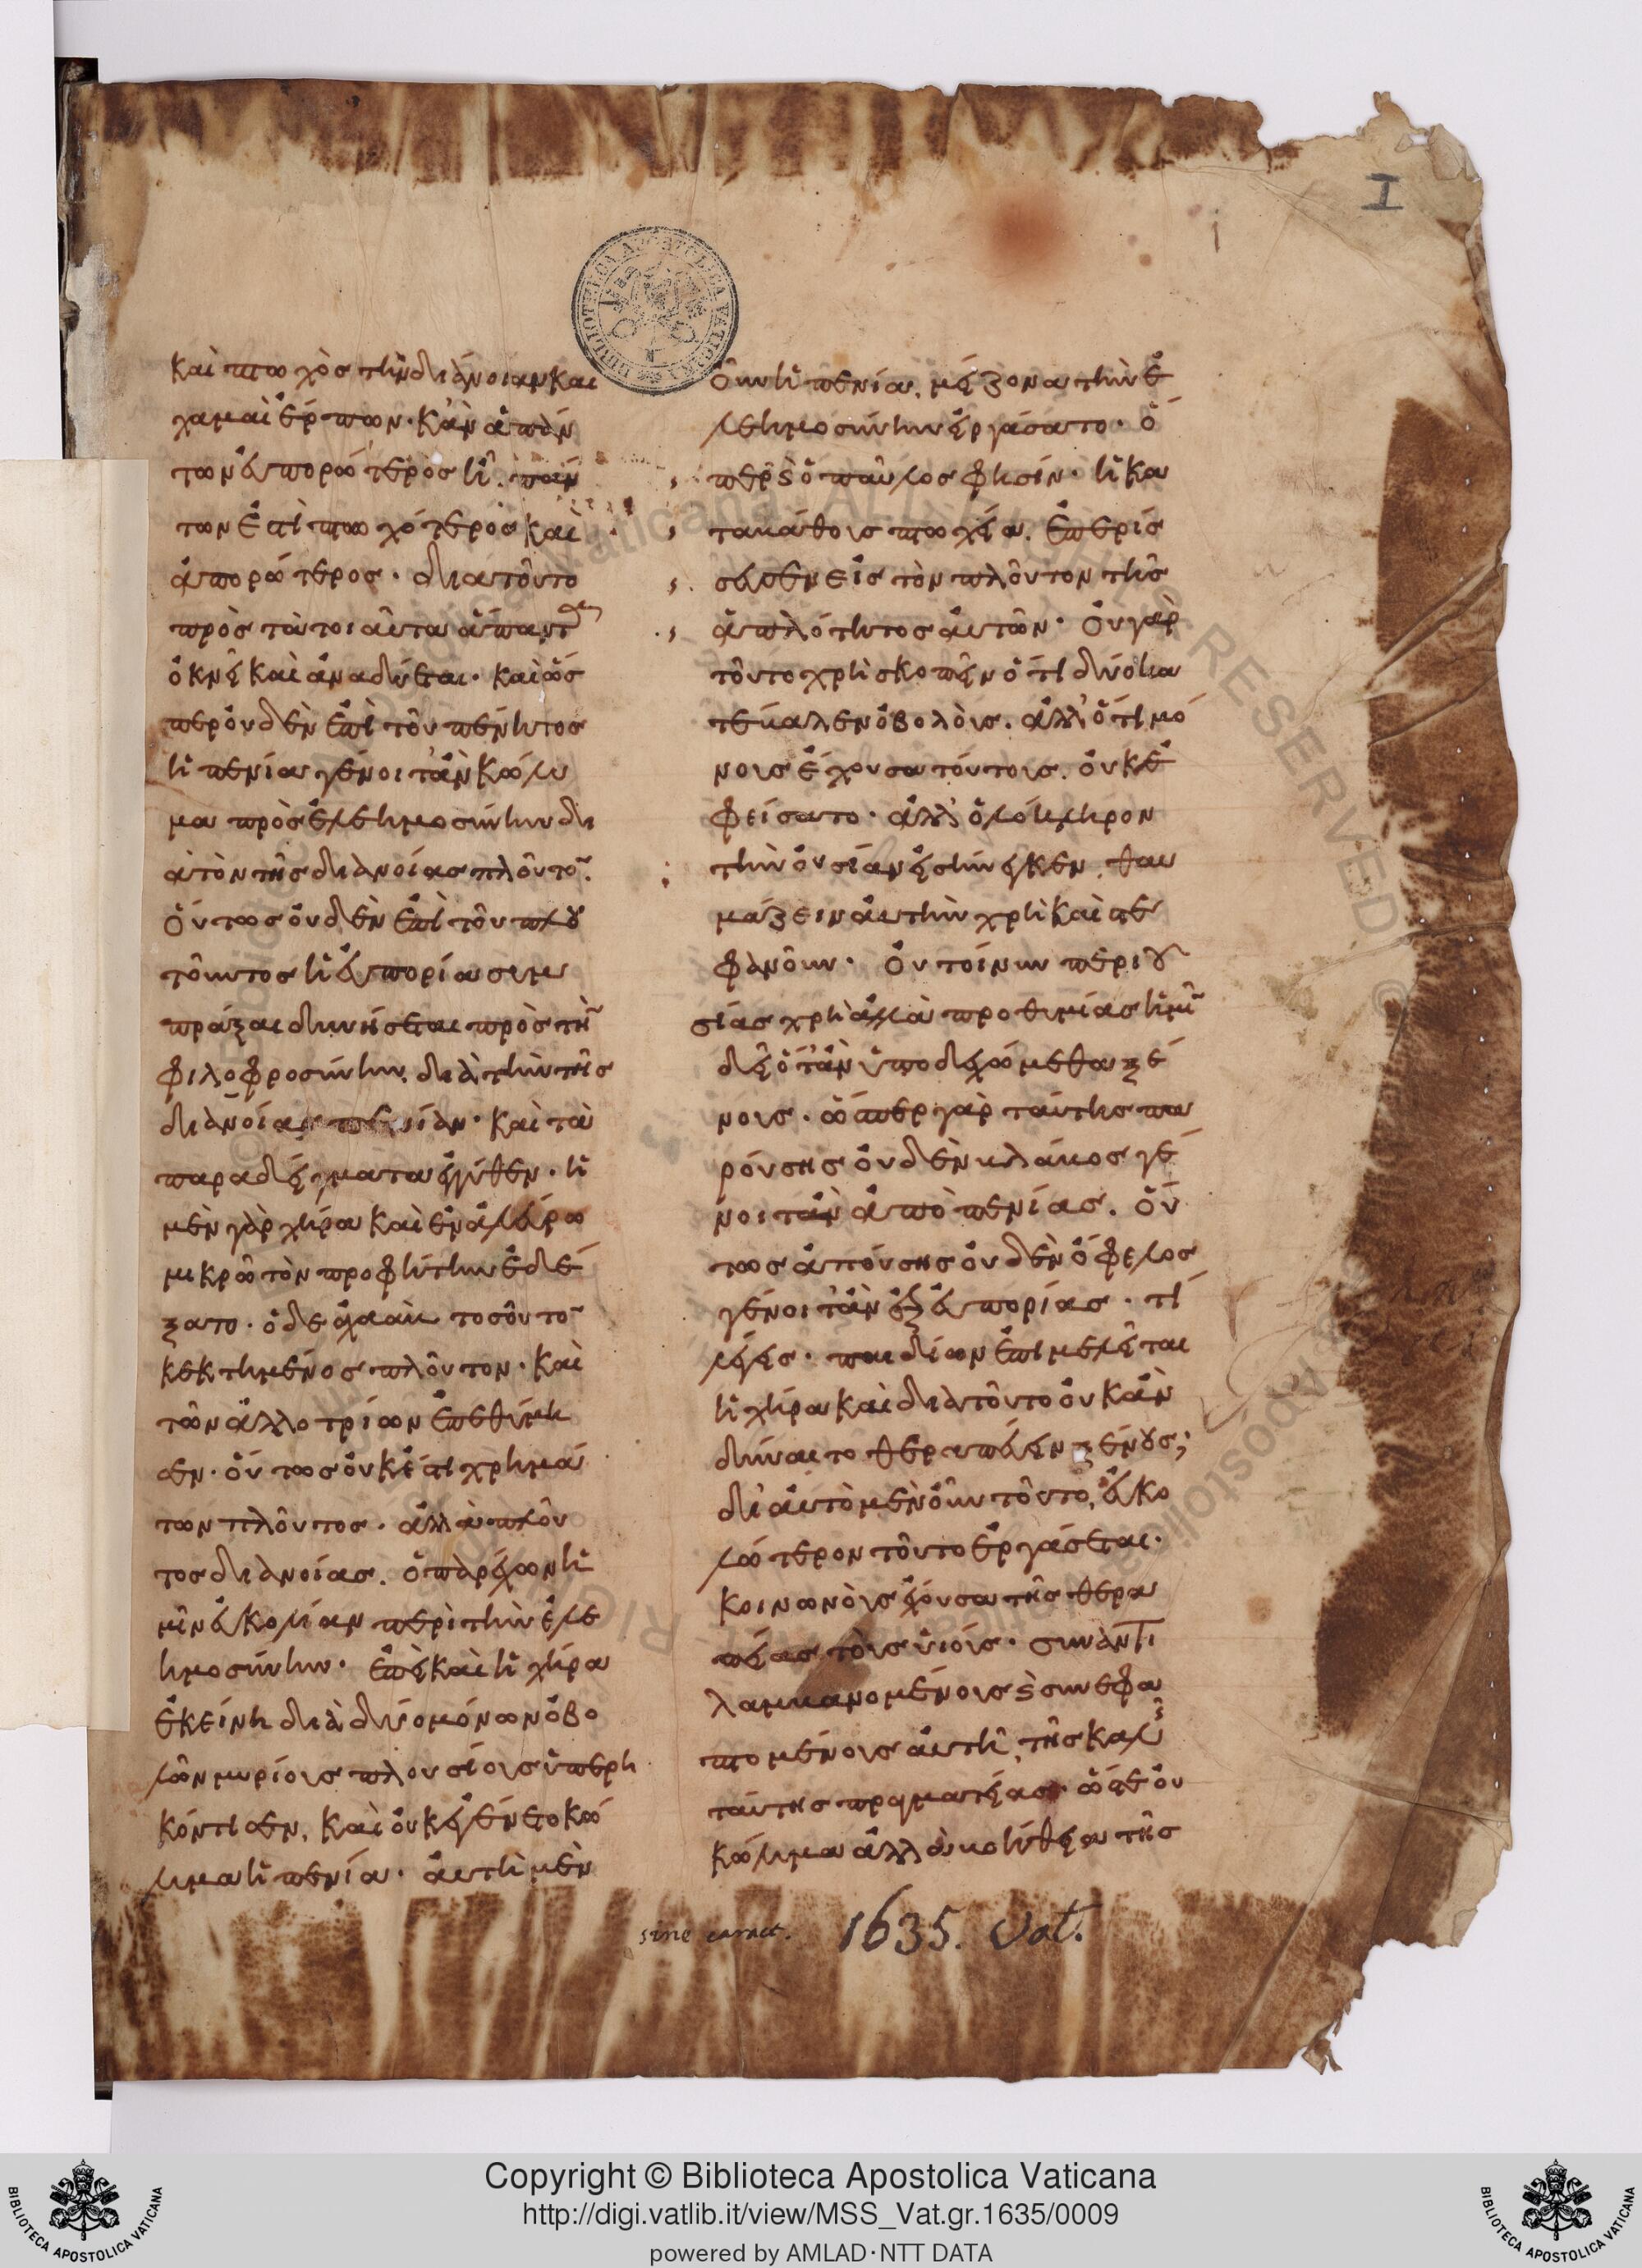 I
i
καὶ πτωχὸς τὴν διάνοιαν καὶ
χαμαὶ ἕρπων· κἂν ἁπάν
των ἀπορώτερος ᾖ. πάν
των ἐστὶ πτωχότερος καὶ
ἀπορώτερος· διατοῦτο
πρὸς τὰ τοιαῦτα ἅπαντα
ὀκνεῖ καὶ ἀναδύεται· καὶ ὥσ
περ οὐδὲν ἐπὶ τοῦ πένητος
ἡ πενία γένοιτ' ἂν κώλυ
μα πρὸς ἐλεημοσύνην δι
α τὸν τῆς διανοίας πλοῦτον.
οὕτως οὐδὲν ἐπὶ τοῦ πλου
τοῦντος ἡ εὐπορία συμ
πράξαι δυνήσεται πρὸς τὴν
φιλοφροσύνην, διὰ τὴν τῆς
διανοίας πενίαν· καὶ τὰ
παραδείγματα ἐγγύθεν· ἡ
μὲν γὰρ χήρα καὶ ἐν ἀλεύρω
μικρῶ τὸν προφήτην ἐδέ
ξατο· ὁ δὲ ἀχαὰβ τοσοῦτον
κεκτημένος πλοῦτον· καὶ
τῶν ἀλλοτρίων ἐπεθύμη
σεν· οὕτως οὐκ ἔστι χρημά
των πλοῦτος· ἀλλὰ πλοῦ
τος διανοίας. ὁ παρέχων ἡ
μῖν εὐκολίαν περὶ τὴν ἐλε
ημοσύνην· ἐπεὶ καὶ ἡ χήρα
ἐκείνη διὰ δύο μόνων ὀβο
λῶν μυρίους πλουσίους ὑπερη
κόντισεν, καὶ οὐκ ἐγένετο κώ
λυμα ἡ πενία· αὕτη μὲν
οὖν ἡ πενία, μείζονα τὴν ἐ
λεημοσύνην εἰργάσατο· ὅ
περ καὶ ὁ παῦλος φησίν· ἡ κα
τα βάθους πτωχεία. ἐπερίσ
σευσεν εἰς τὸν πλοῦτον τῆς
ἁπλότητος αὐτῶν· οὐ γὰρ
τοῦτο χρὴ σκοπεῖν ὅτι δύο κα
τέβαλεν ὀβολούς. ἀλλ' ὅτι μό
νους ἔχουσα τούτους. οὐκ ἐ
φείσατο· ἀλλ' ὁλόκληρον
τὴν οὐσίαν εἰσήνεγκεν. θαυ
μάζειν αὐτὴν χρὴ καὶ στε
φανοῦν· οὐ τοίνυν περιου
σίας χρὴ ἀλλὰ προθυμίας ἡμῖν
δεῖ ὅταν ὑποδεχώμεθα ξέ
νους· ὥσπερ γὰρ ταύτης πα
ρούσης οὐδὲν βλάβος γέ
νοιτ' ἂν ἀπὸ πενίας. οὕ
τως ἀπούσης οὐδὲν ὄφελος
γένοιτ' ἂν ἐξ εὐπορίας· τί
λέγεις· παιδίων ἐπιμελεῖται
ἡ χήρα καὶ διατοῦτο οὐκ ἂν
δύναιτο θεραπεύειν ξένους;
δι' αὐτὸ μὲν οὖν τοῦτο, εὐκο
λώτερον τοῦτο ἐργάσεται.
κοινωνοὺς ἔχουσα τῆς θερα
πείας τοὺς υἱούς· συναντι
λαμβανομένους καὶ συνεφα
πτομένους αὐτῆ, τῆς καλῆς
ταύτης πραγματείας· ὥστε οὐ
κώλυμα ἀλλὰ βοήθεια τῆς
sine caract. 1635. Vat.
Copyright © Biblioteca Apostolica Vaticana
http://digi.vatlib.it/view/MSS_Vat.gr.1635/0009
powered by AMLAD·NTT DATA
BIBLIOTECA APOSTOLICA VATICANA
BIBLIOTECA APOSTOLICA VATICANA